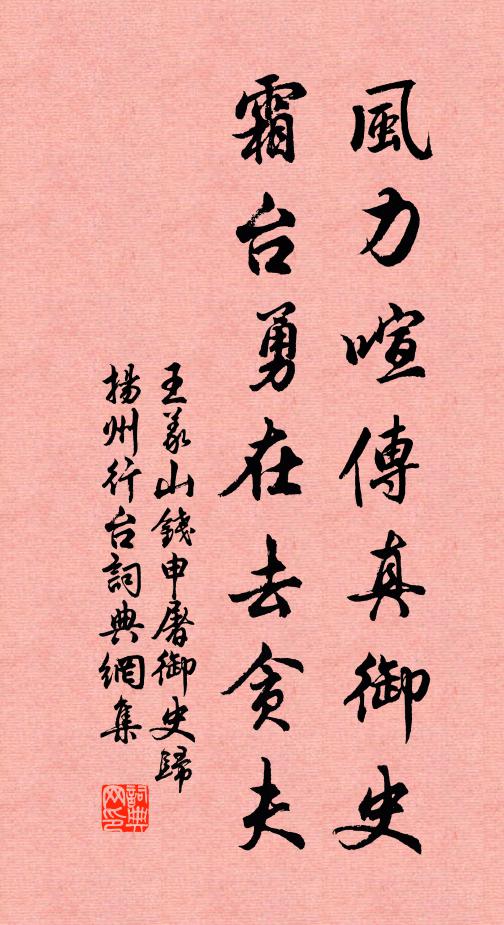 風力喧傳真御史
霜台勇在去貪夫
王義山錢申屠御史歸
揚州行台詞典網集
詞典網印